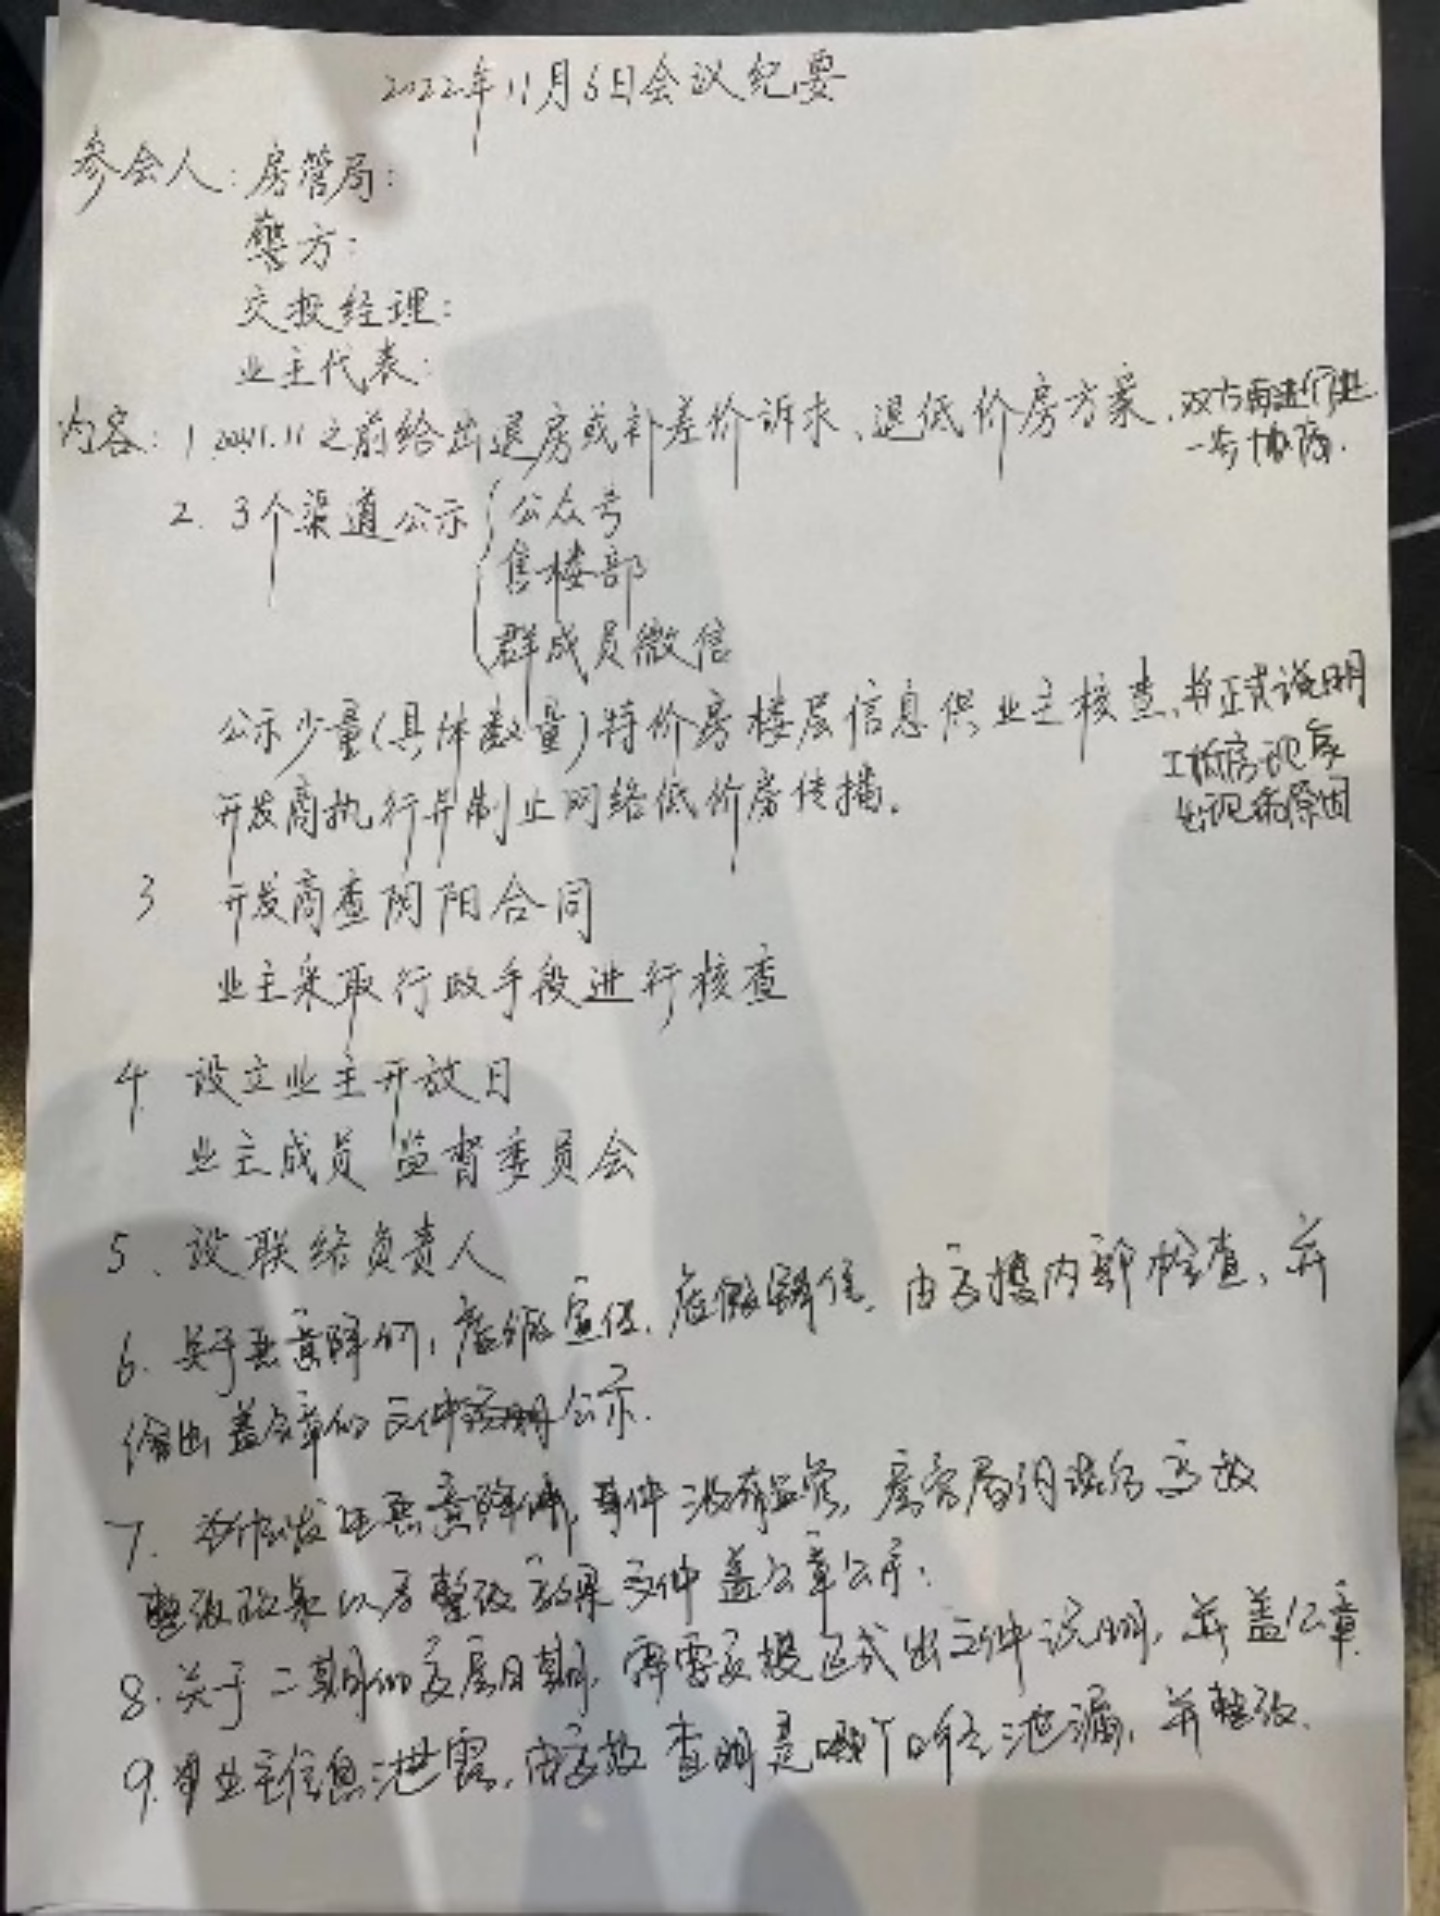 2022年11月6日会议纪要
参会人：房管局：
警方：
交投经理：
业主代表：
内容：1 11.11之前给出退房或补差价诉求、退低价房方案，双方再进行进
一步协商.
2. 3个渠道公示
公众号
售楼部
群成员微信
公示少量(具体数量)特价房楼层信息供业主核查，并正式说明
工抵房现象
出现的原因
开发商执行并制止网络低价房传播。
3 开发商查阴阳合同
业主采取行政手段进行核查
4 设立业主开放日
业主成员 监督委员会
5、设联络负责人
6. 关于恶意降价，虚假宣传，虚假，由交投内部检查，并
给出盖公章的文件说明公示.
7. 发生恶意降价，事件没有监管，房管局
整改政策以后整改效果文件盖公章公示；
8. 关于二期的交房日期，需要交投正式出文件说明，并盖公章
9. 业主信息泄露，由交投查明是哪个口径泄漏，并整改.